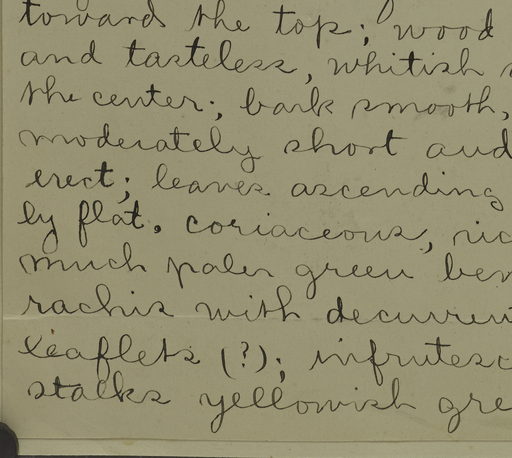 toward the top; wood
and tasteless, whitish
the center; bark smooth,
moderately short and
erect; leaves ascending
ly flat, coriaceous, ric
much paler green ben
rachis with decurrent
leaflets (?); infrutesc
stalks yellowish gre